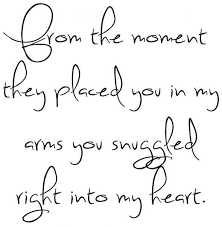 from the moment
they placed you in my
arms you snuggled
right into my heart.